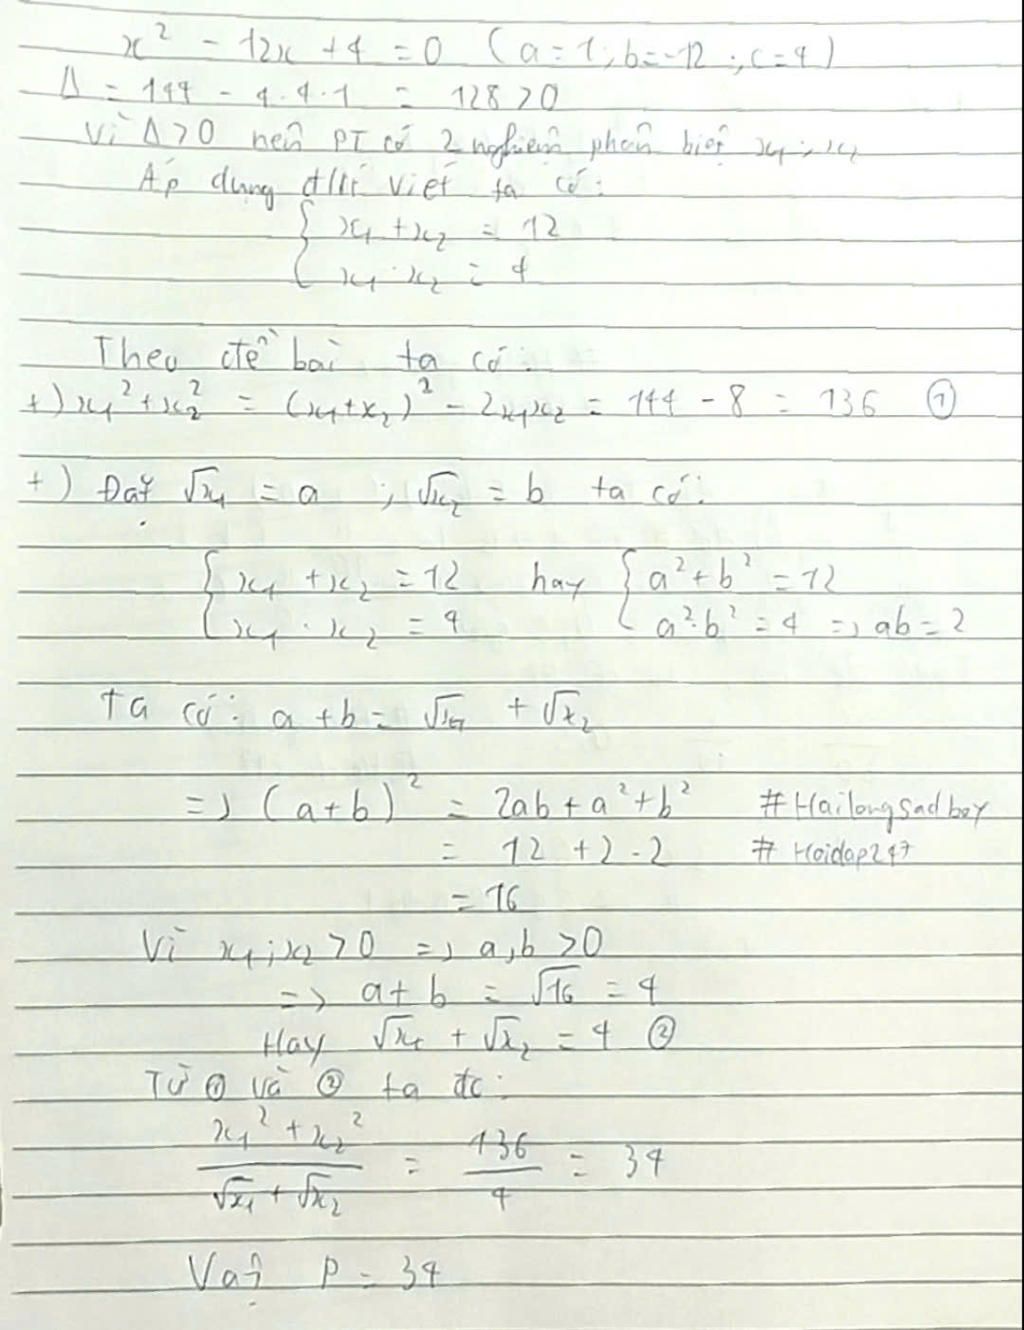 x² - 12x + 4 = 0 (a = 1; b = -12; c = 4)
Δ = 144 - 4.4.1 = 128 > 0
Vì Δ > 0 nên PT có 2 nghiệm phân biệt x₁; x₂
Áp dụng đlí Viét ta có:
{ x₁ + x₂ = 12
x₁ . x₂ = 4
Theo đề bài ta có:
+) x₁² + x₂² = (x₁ + x₂)² - 2x₁x₂ = 144 - 8 = 136 ①
+) Đặt √x₁ = a ; √x₂ = b ta có:
{ x₁ + x₂ = 12 hay { a² + b² = 12
x₁ . x₂ = 4 a².b² = 4 => ab = 2
Ta có: a + b = √x₁ + √x₂
=> (a + b)² = 2ab + a² + b² #Hailongsadboy
= 12 + 2.2 # Hoidap247
= 16
Vì x₁; x₂ > 0 => a, b > 0
=> a + b = √16 = 4
Hay √x₁ + √x₂ = 4 ②
Từ ① và ② ta đc:
(x₁² + x₂²)/(√x₁ + √x₂) = 136/4 = 34
Vậy P = 34